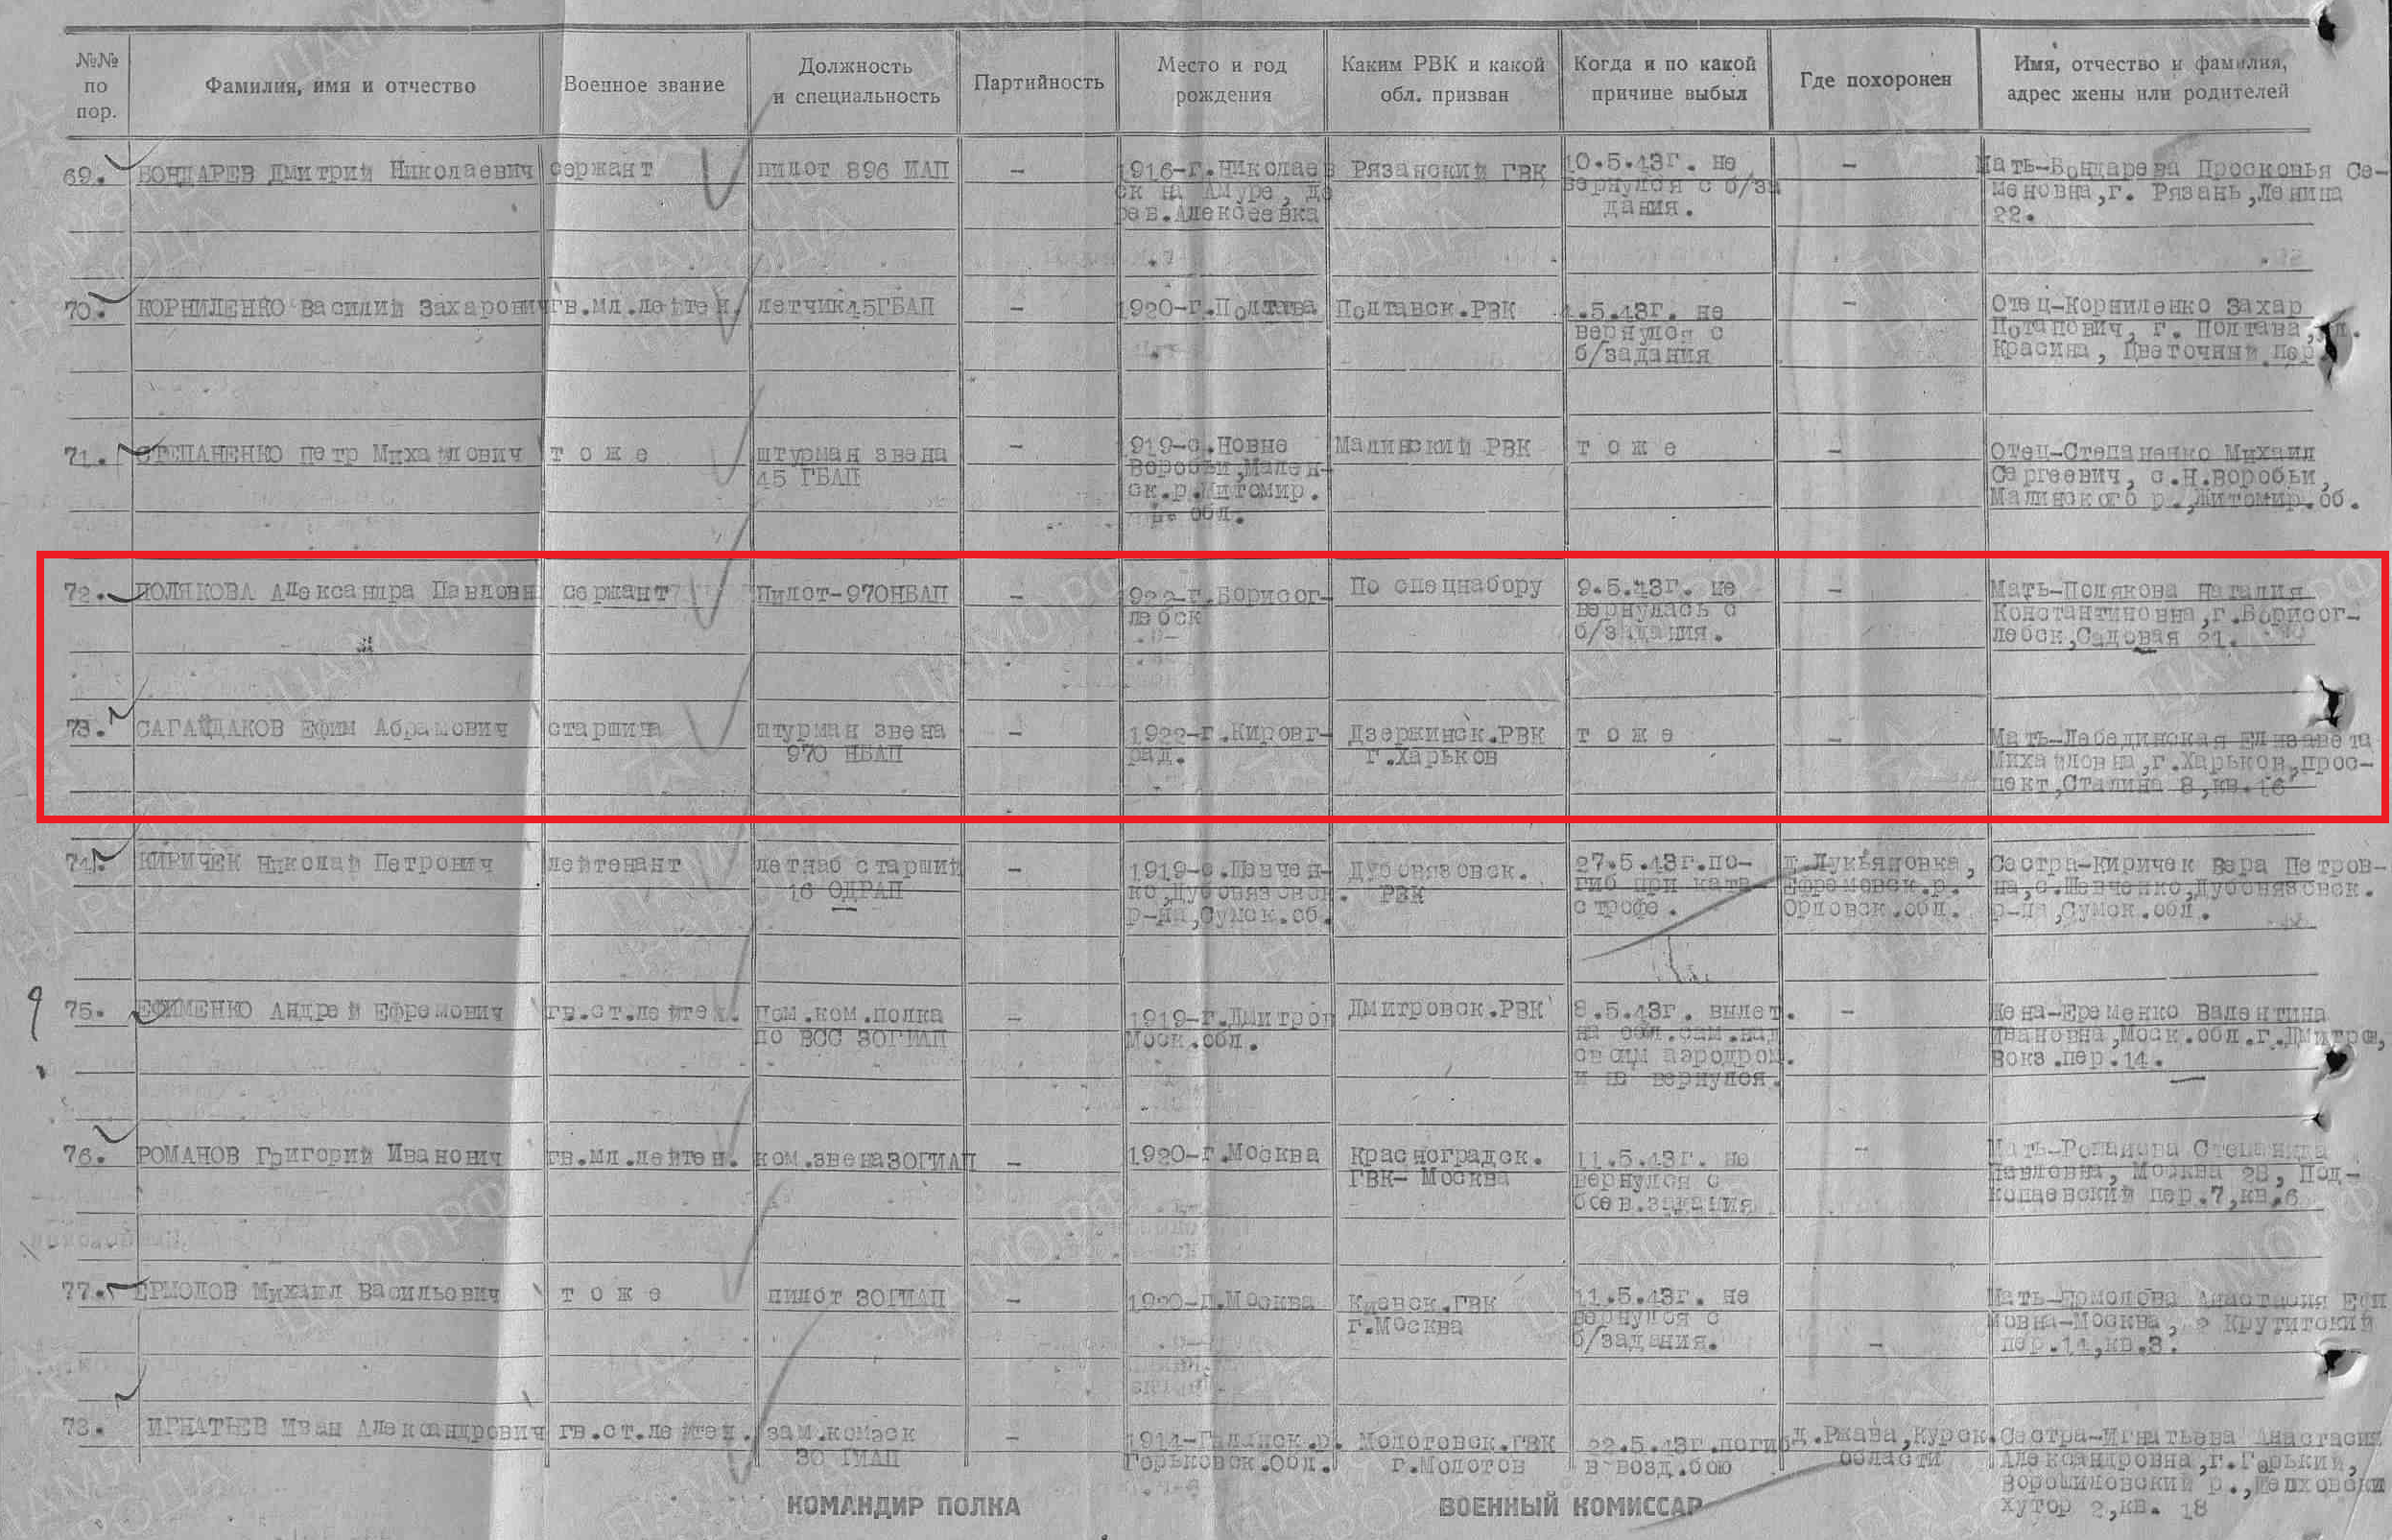 №№ по пор.
Фамилия, имя и отчество
Военное звание
Должность и специальность
Партийность
Место и год рождения
Каким РВК и какой обл. призван
Когда и по какой причине выбыл
Где похоронен
Имя, отчество и фамилия, адрес жены или родителей
69. БОНДАРЕВ Дмитрий Николаевич сержант пилот 896 ИАП – 1916-г.Николаев Рязанский ГВК 10.5.43г. не – Мать-Бондарева Просковья Се-
ск на Амуре, де вернулся с б/за меновна,г. Рязань,Ленина
рев.Алексеевка дания. 22.
70. КОРНИЛЕНКО Василий Захарович гв.мл.лейтен. летчик45ГБАП – 1920-г.Полтава Полтавск.РВК .5.43г. не – Отец-Корниленко Захар
вернулся с Потапович, г. Полтава,
б/задания Красина, Цветочный пер
71. СТЕПАНЕНКО Петр Михайлович т о ж е штурман звена – 919-с.Новые Малинский РВК т о ж е – Отец-Степаненко Михаил
45 ГБАП Воробьи,Мален- Сергеевич, с.Н.Воробьи,
ск.р.Житомир. Малинского р.,Житомир.об.
обл.
72. ПОЛЯКОВА Александра Павловн сержант Пилот-970НБАП – 922-г.Борисог- По спецнабору 9.5.43г. не – Мать-Полякова Наталия
лебск вернулась с Константиновна,г.Борисог-
б/задания. лебск,Садовая 21.
73. САГАЙДАКОВ Ефим Абрамович старшина штурман звена – 1922-г.Кировг- Дзержинск.РВК т о ж е – Мать-Лебединская Елизавета
970 НБАП рад. г.Харьков Михайловна,г.Харьков,прос-
пект,Сталина 8,кв.16
74. КИРИЧЕК Николай Петрович лейтенант летнаб старший – 1919-с.Шевчен- Дубовязовск. 27.5.43г.по- Лукьяновка, Сестра-Киричек Вера Петров-
16 ОДРАП ко,Дубовязовск. РВК гиб при ката- Ефремовск.р. на,с.Шевченко,Дубовязовск.
р-на,Сумск.об. строфе. Орловск.обл. р-на,Сумск.обл.
75. ЕФИМЕНКО Андрей Ефремович гв.ст.лейтен. Пом.ком.полка – 1919-г.Дмитров Дмитровск.РВК 8.5.43г. вылет. – Жена-Еременко Валентина
по ВСС 30ГИАП Моск.обл. на обл.сам.над Ивановна,Моск.обл.г.Дмитров,
своим аэродром. Вокз.пер.14.
и не вернулся.
76. РОМАНОВ Григорий Иванович гв.мл.лейтен. ком.звена30ГИАП – 1920-г.Москва Красноградск. 11.5.43г. не – Мать-Романова Степанида
ГВК- Москва вернулся с Павловна, Москва 28, Под-
боев.задания копаевский пер.7,кв.6
77. ЕРМОЛОВ Михаил Васильович т о ж е пилот 30ГИАП – 1920-г.Москва Киевск.ГВК 11.5.43г. не Мать-Ермолова Анастасия Ефи
г.Москва вернулся с мовна-Москва, Крутитский
б/задания. – пер.11,кв.3.
78. ИГНАТЬЕВ Иван Александрович гв.ст.лейтен. зам.комэск – 1914- р. Молотовск.ГВК 22.5.43г.погиб д.Ржава,Курск. Сестра-Игнатьева Анастасия
30 ГИАП Горьковск.обл. г.Молотов в возд.бою области Александровна,г.Горький,
Ворошиловский р.,
хутор 2,кв. 18
КОМАНДИР ПОЛКА ВОЕННЫЙ КОМИССАР